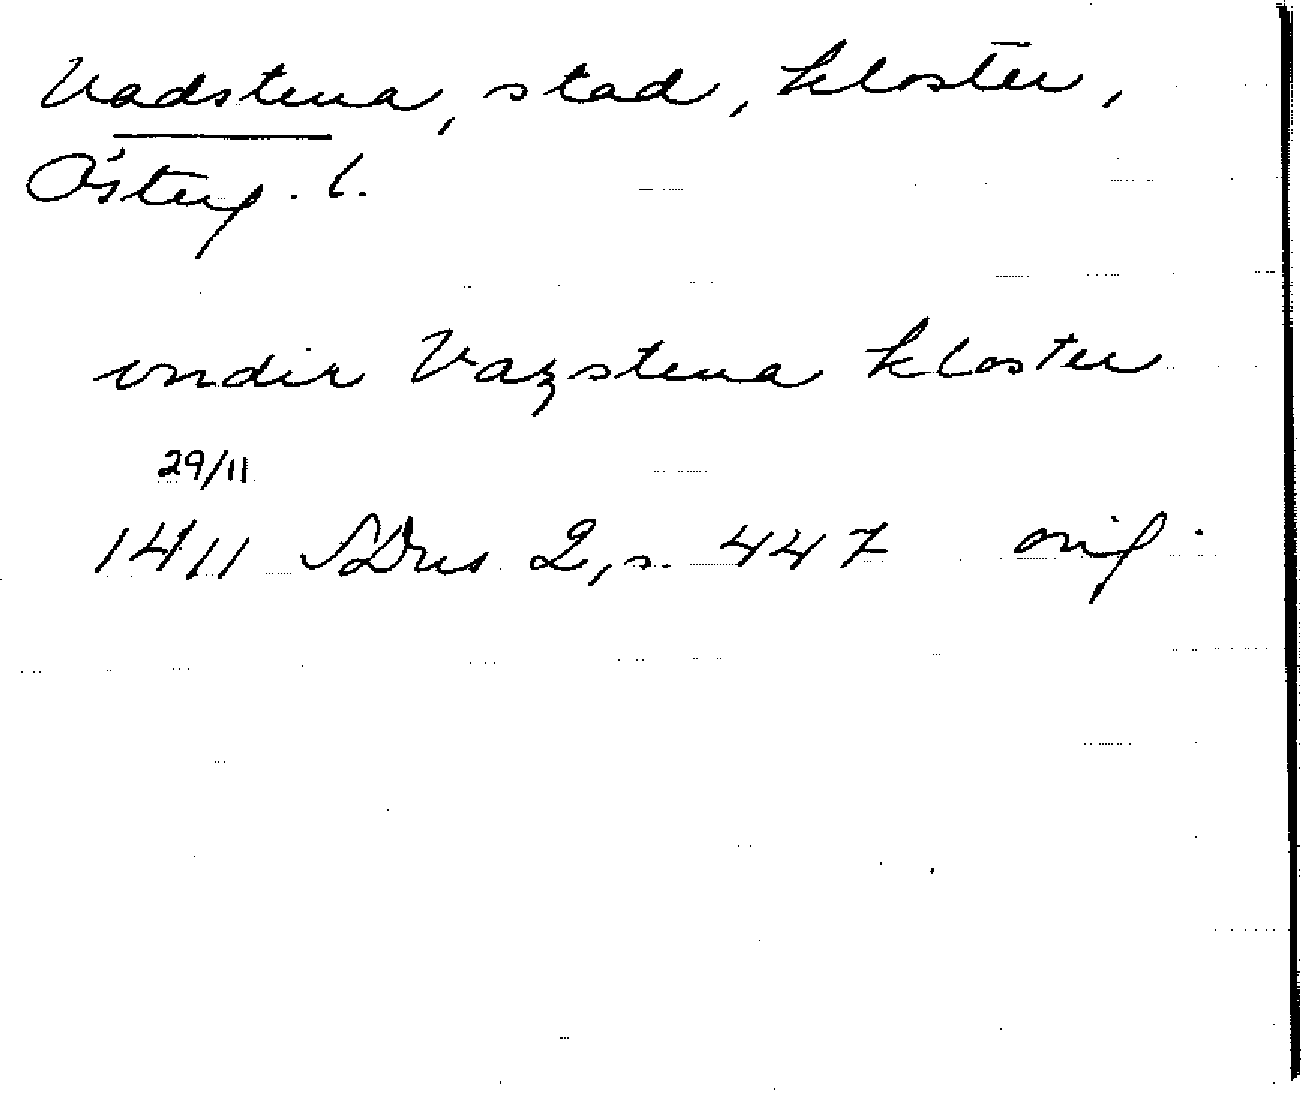 Vadstena, stad, kloster,
Österg. l.
vndir Vazstena kloster
29/11
1411 SDns 2, s. 447 orig.